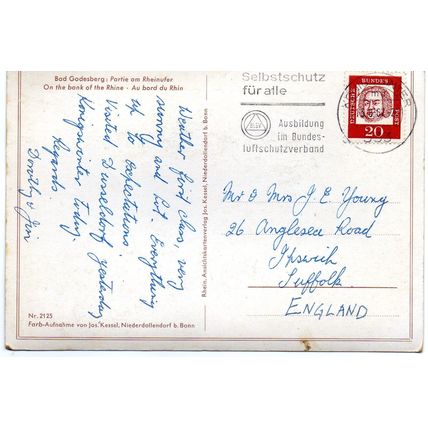 Bad Godesberg: Partie am Rheinufer
On the bank of the Rhine · Au bord du Rhin
Weather first class, very
sunny and hot. Everything
up to expectations.
Visited Dusseldorf yesterday
Konigswinter today.
Regards
Dorothy & Jim
Nr. 2125
Farb-Aufnahme von Jos. Kessl, Niederdollendorf b. Bonn
Rhein. Ansichtskartenverlag Jos. Kessl, Niederdollendorf b. Bonn
Selbstschutz
für alle
Ausbildung
im Bundes-
luftschutzverband
DEUTSCHE
BUNDES
POST
20
Mr & Mrs J. E. Young
26 Anglesea Road
Ipswich
Suffolk.
ENGLAND